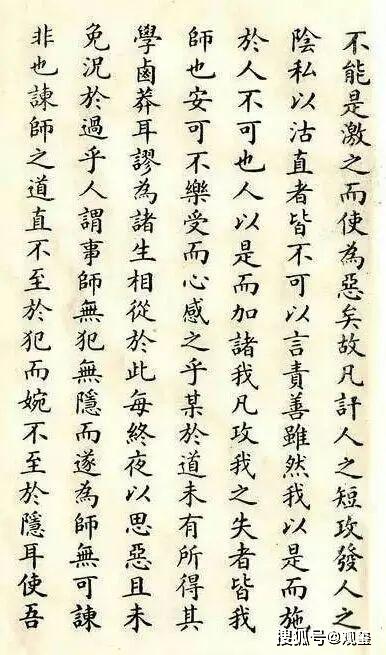 不能是激之而使為惡矣故凡訐人之短攻發人之
陰私以沽直者皆不可以言責善雖然我以是而施
於人不可也人以是而加諸我凡攻我之失者皆我
師也安可不樂受而心感之乎某於道未有所得其
學鹵莽耳謬為諸生相從於此每終夜以思惡且未
免況於過乎人謂事師無犯無隱而遂為師無可諫
非也諫師之道直不至於犯而婉不至於隱耳使吾
搜狐号@观鉴